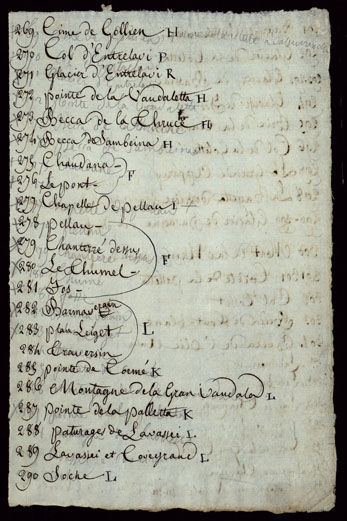 269 Cime de Gollien H
270 Col d'Entrelavi P
271 Glacier d'Entrelavi R
272 pointe de la Vaudaletta H
273 Becca de la Thruce Hb
274 Becca de Sambeina H
275 Chaudana
276 Le pont F
277 Chapelle de pellau F
278 pellau
279 Chanterre dessu
280 Le Thumel F
281 Fos
282 Barmaverain
283 plan Leiget L
284 Traversin
285 pointe de Tormé K
286 Montagne de la Gran Vaudala L
287 pointe de la palletta K
288 paturages de Lavassei L
289 Lavassei et Coveyrand L
290 Soche L